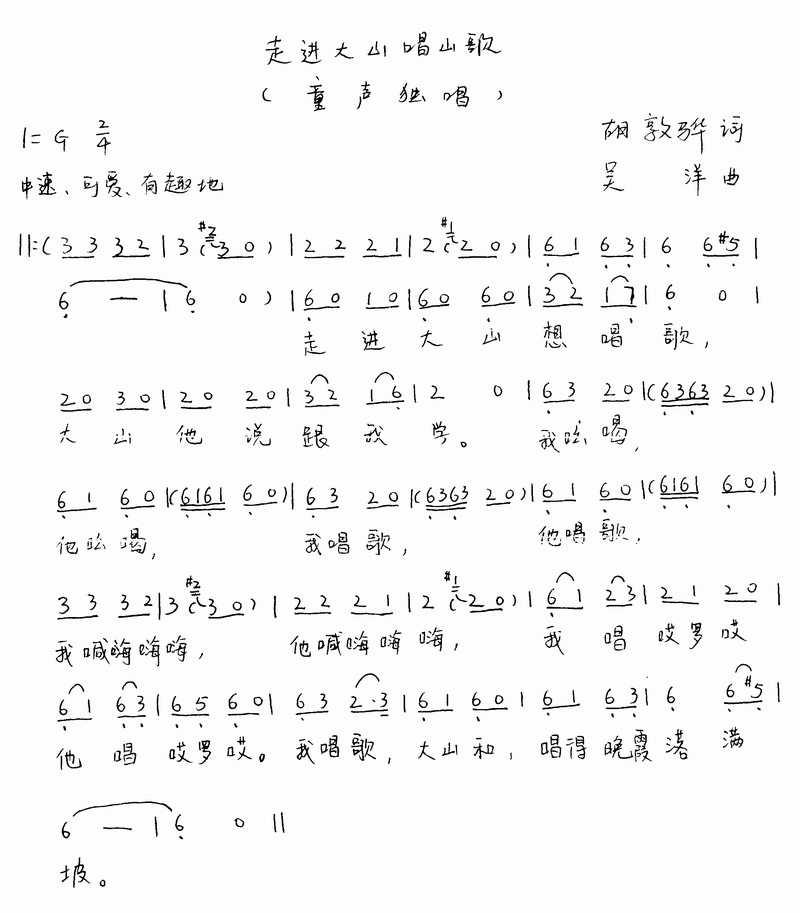 走进大山唱山歌
（童声独唱）
1=G 2/4
胡敦骅词
中速、可爱、有趣地
吴 洋曲
||:( 3 3 3 2 | 3 (#2 3 0 ) | 2 2 2 1 | 2 (#1 2 0 ) | 6 1 6 3 | 6 6 #5 |
6 — | 6 0 ) | 6 0 1 0 | 6 0 6 0 | 3 2 1 7 | 6 0 |
走 进 大 山 想 唱 歌，
2 0 3 0 | 2 0 2 0 | 3 2 1 6 | 2 0 | 6 3 2 0 | ( 6 3 6 3 2 0 ) |
大 山 他 说 跟 我 学。 我吆喝，
6 1 6 0 | ( 6 1 6 1 6 0 ) | 6 3 2 0 | ( 6 3 6 3 2 0 ) | 6 1 6 0 | ( 6 1 6 1 6 0 ) |
他吆喝， 我唱歌， 他唱歌，
3 3 3 2 | 3 (#2 3 0 ) | 2 2 2 1 | 2 (#1 2 0 ) | 6 1 2 3 | 2 1 2 0 |
我喊嗨嗨嗨， 他喊嗨嗨嗨， 我 唱 哎罗哎
6 1 6 3 | 6 5 6 0 | 6 3 2 · 3 | 6 1 6 0 | 6 1 6 3 | 6 6 #5 |
他 唱 哎罗哎。 我唱歌，大山和，唱得晚霞落 满
6 — | 6 0 ||
坡。